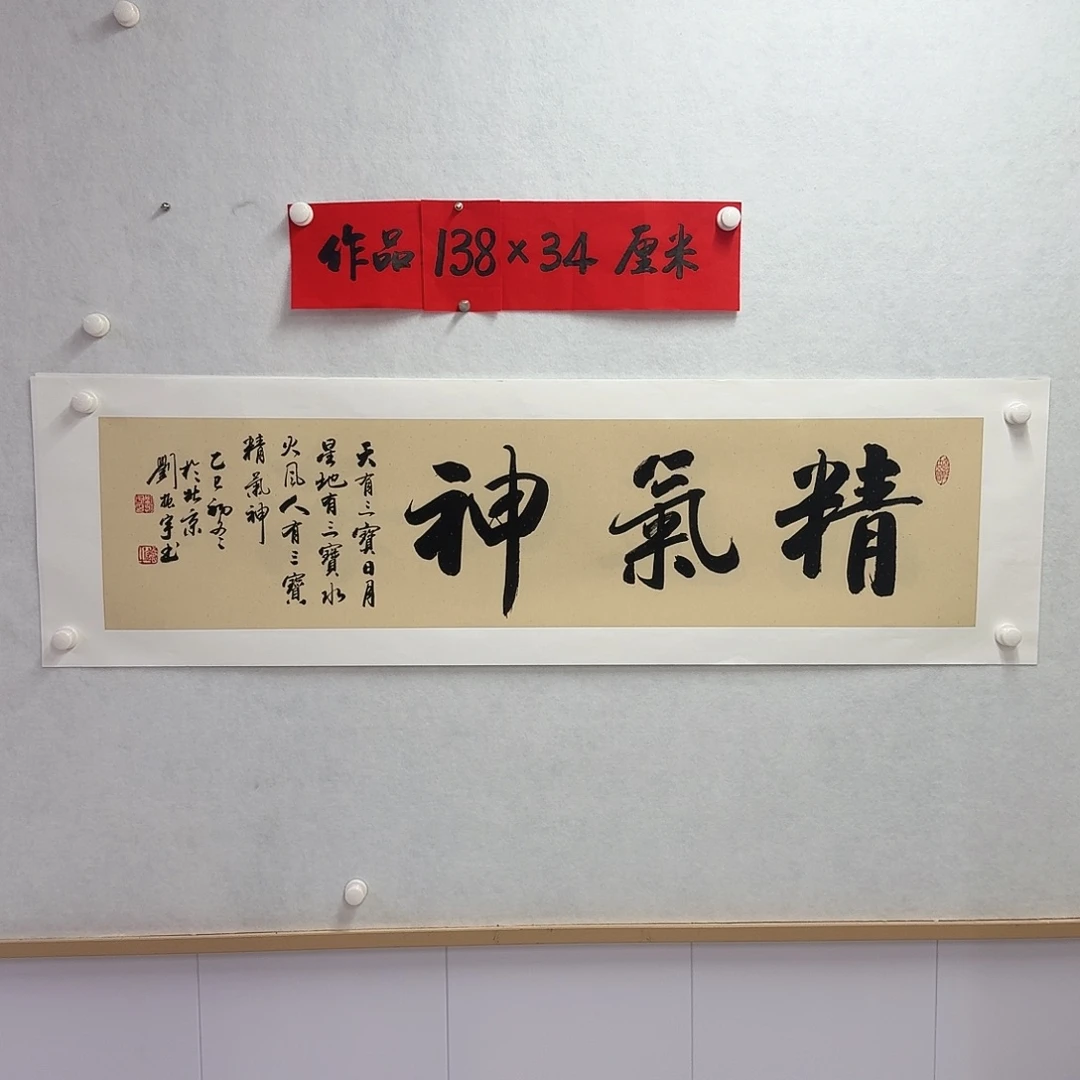 作品 138×34 厘米
精氣神
天有三寶日月
星地有三寶水
火风人有三寶
精氣神
乙巳初冬
於北京
劉振宇書